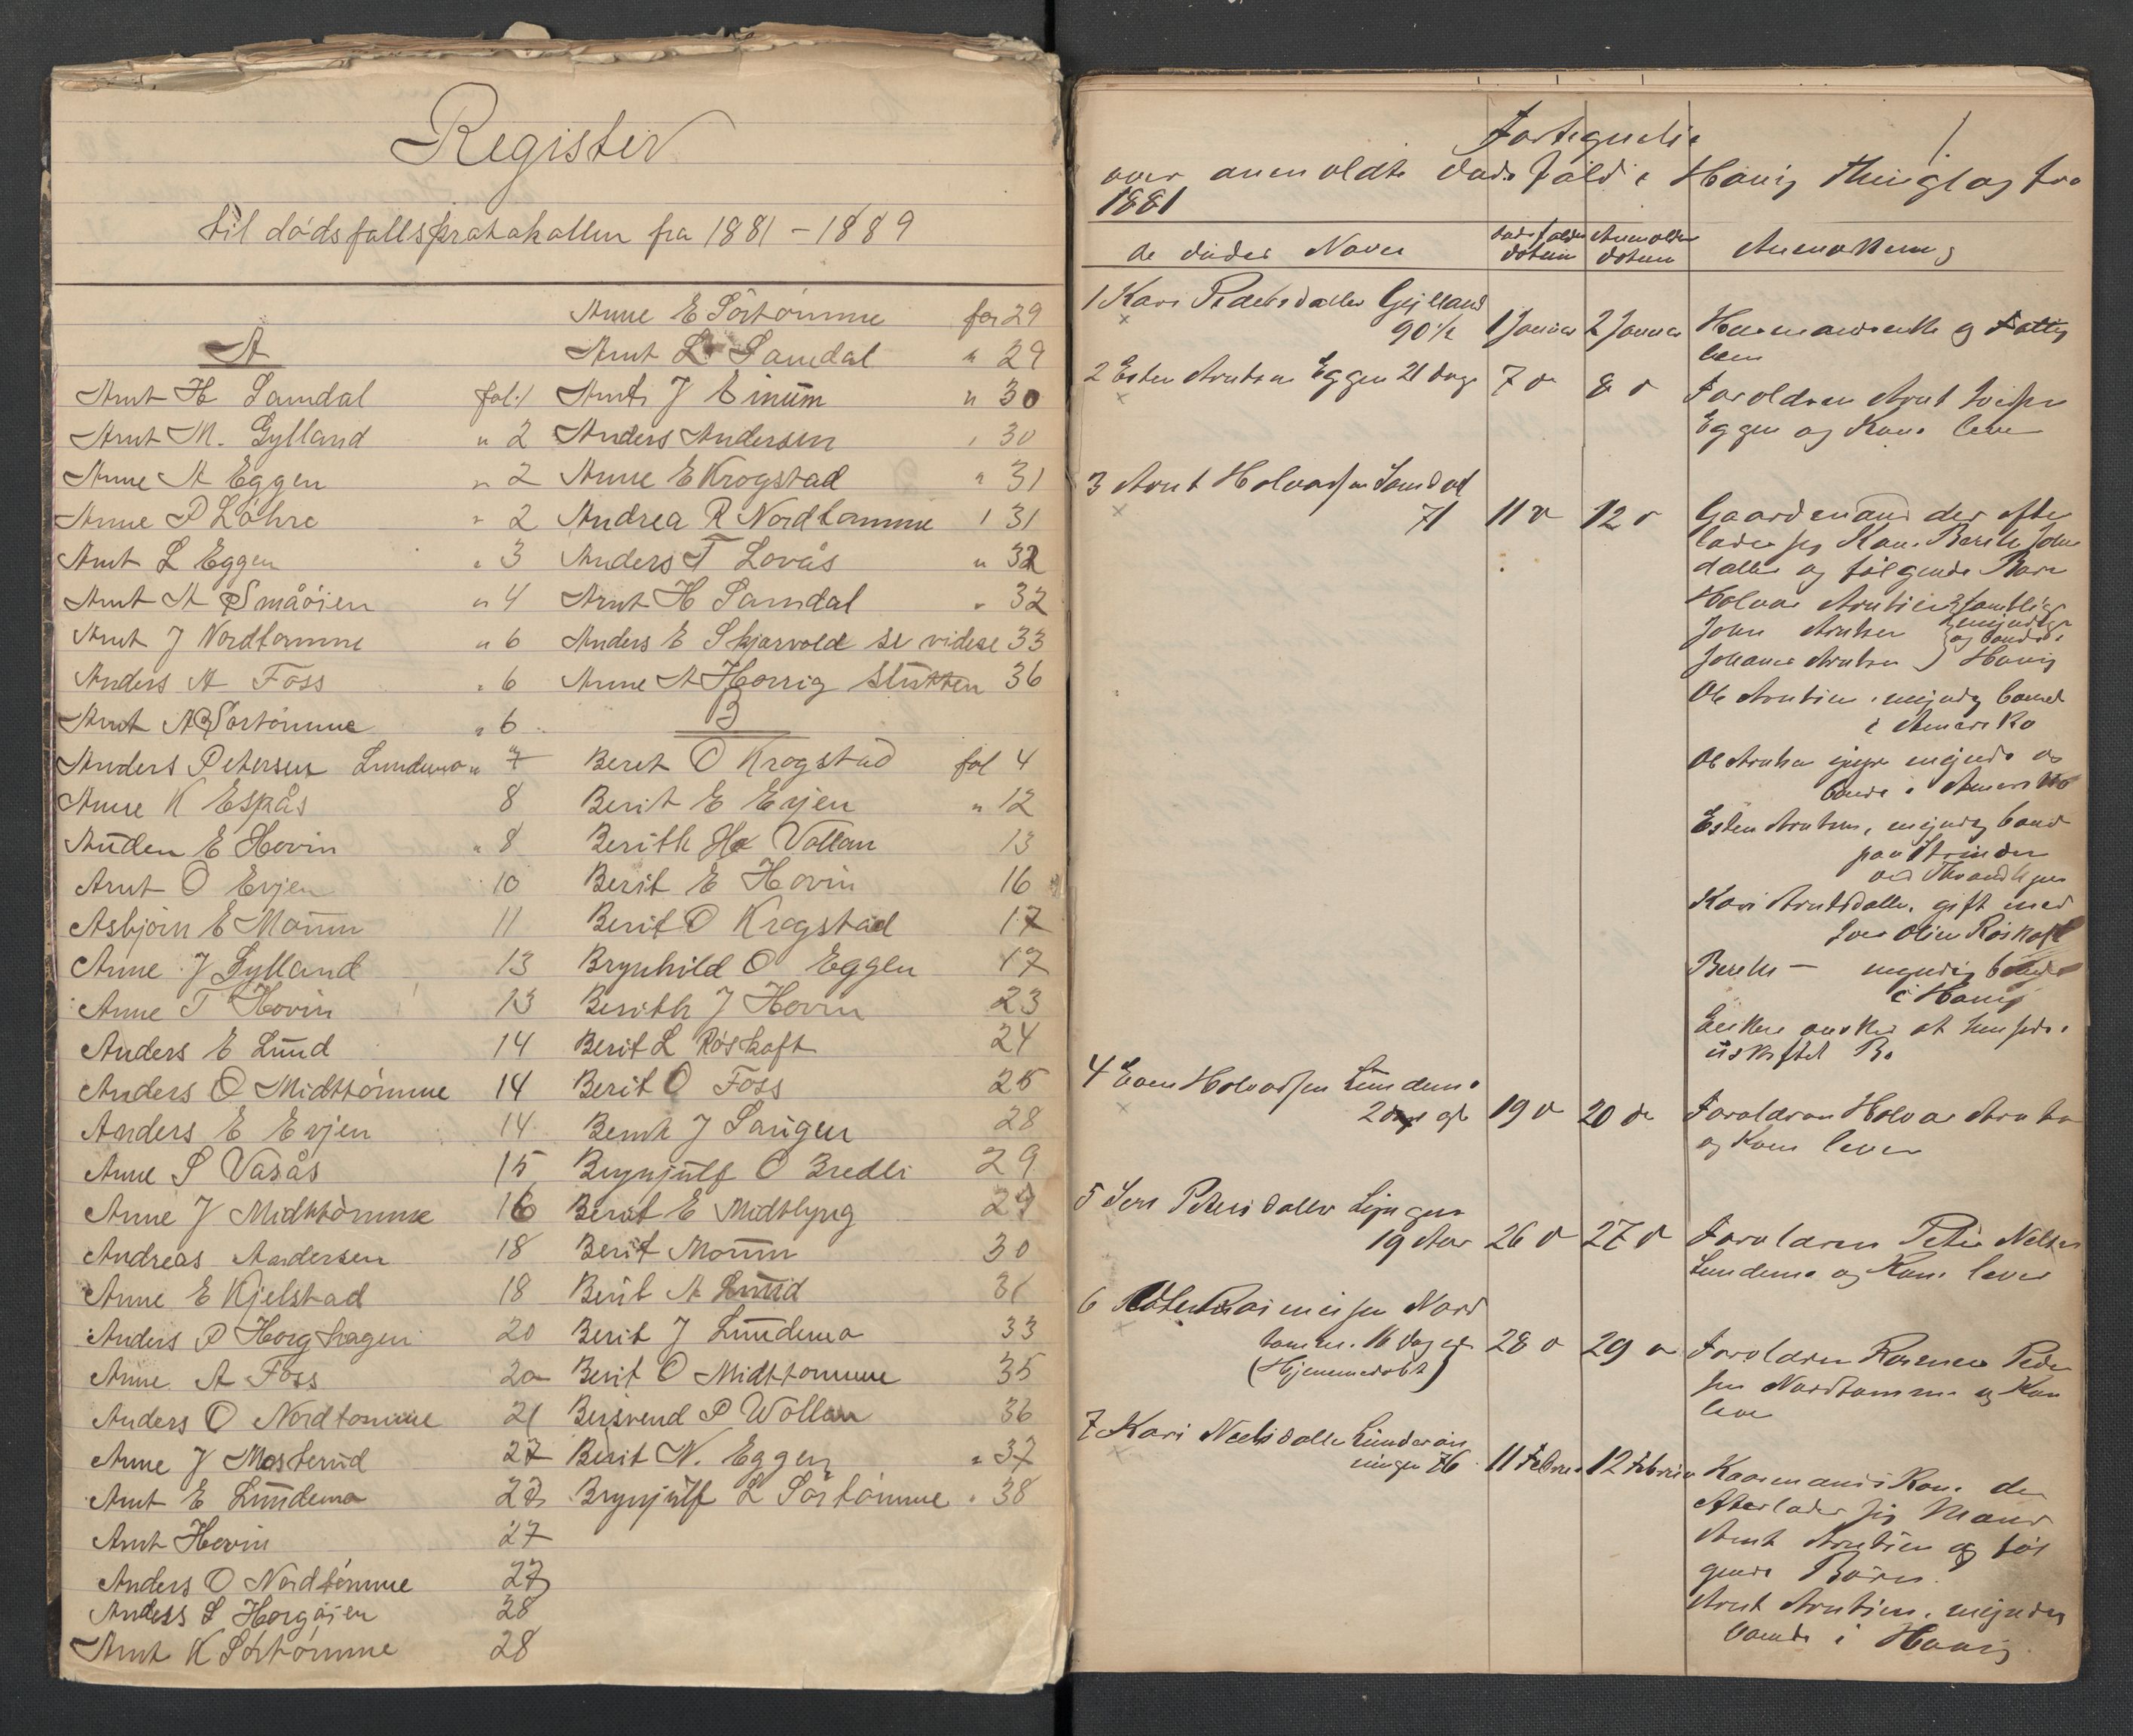 Register
til dødsfallsprotokollen fra 1881 - 1889
A
Arnt H Samdal fol. 1
Arnt M. Gylland " 2
Anne A Eggen " 2
Anne P Løhre " 2
Arnt L Eggen " 3
Arnt A Småøien " 4
Arnt J Nordtømme " 6
Anders A Foss " 6
Arnt A Sørtømme " 6
Anders Petersen Lundemo " 7
Anne K Espås 8
Auden E Hovin " 8
Arnt O Evjen 10
Asbjørn E Moum 11
Anne J Gylland 13
Anne T Hovin 13
Anders E Lund 14
Anders O Midttømme 14
Anders E Evjen 14
Anne S Vasås 15
Anne J Midttømme 16
Andreas Andersen 18
Anne E Kjelstad 18
Anders P Horghagen 20
Anne A Foss 20
Anders O Nordtømme 21
Anne J Mosterud 27
Arnt E Lundemo
Arnt Hovin 27
Anders O Nordtømme 27
Anders S Horgøien 28
Arnt K Sørtømme 28
Anne E Sørtømme fol 29
Arnt L Samdal " 29
Arnt J Einum " 30
Anders Andersen " 30
Anne E Krogstad " 31
Andrea R Nordtømme " 31
Anders T Lovås " 32
Arnt H Samdal " 32
Anders E Skjærvold se videre 33
Anne A Horrig slutten 36
B
Beret O Krogstad fol 4
Berit E Evjen " 12
Berith H Vollan 13
Berit E Hovin 16
Berit O Krogstad 17
Brynhild O Eggen 17
Berith J Hovin 23
Berit L Røskaft 24
Berit O Foss 25
Beret J Langen 28
Brynjulf O Bredli 29
Berit E Midtlyng 29
Berit Moum 30
Berit A Lund 31
Berit J Lundemo 33
Berit O Midttømme 35
Bersvend P Wollan 36
Berit N. Eggen " 37
Brynjulf L Sørtømme " 38
Fortegnelse 1.
over anmeldte Dødsfald i Høvig Thinglag fra
1881
de dødes Navn
dødsfaldets datum
Anmeldelsens datum
Anmerkning
1 Kari Pedersdatter Gylland
90 ½ 1 Januar 2 Januar Huusmandsenke og Fattig
lem
2 Esten Arntsen Eggen 21 dage 7 d 8 d Forældren Arnt Larsen
Eggen og Kone lever
3 Arnt Halvorsen Samdal
71 11 d 12 d Gaardmand der efter
lader sig Kone Berit Johns
datter og følgende Børn
Halvor Arntsen samtlige
John Arntsen myndige
Johannes Arntsen og boende i Høvig
Ole Arntsen, myndig boende
i Amerika
Ole Arntsen yngre myndig og
boende i Amerika
Esten Arntsen, myndig boende
paa Strinden
ved Trondhjem
Kari Arntsdatter, gift med
Lars Olsen Røskaft
Berit — myndig boende
i Høvig
Enken ønsker at hensidde i
uskiftet Bo
4 Even Halvorsen Lundemo
2 dage gl 19 d 20 d Forældren Halvor Arntsen
og Kone lever
5 Petersdatter
19 Aar 26 d 27 d Forældren Peter Nilsen
Lundemo og Kone lever
6 Rasmussen Nord
tømme. 16 dage gl 28 d 29 d Forældren Rasmus Peder
(Hjemmedøbt) sen Nordtømme og Kone
lever
7 Kari Neelsdatter Lundemo
76 11 Februar 12 Februar Kaarmands Kone der
efterlader sig Mand
Arnt Arntsen og føl
gende Børn.
Arnt Arntsen, myndig
boende i Høvig